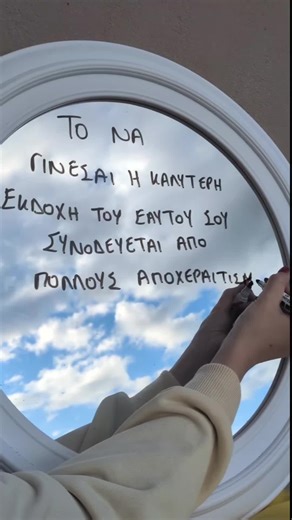 ΤΟ ΝΑ
ΓΙΝΕΣΑΙ Η ΚΑΛΥΤΕΡΗ
ΕΚΔΟΧΗ ΤΟΥ ΕΑΥΤΟΥ ΣΟΥ
ΣΥΝΟΔΕΥΕΤΑΙ ΑΠΟ
ΠΟΛΛΟΥΣ